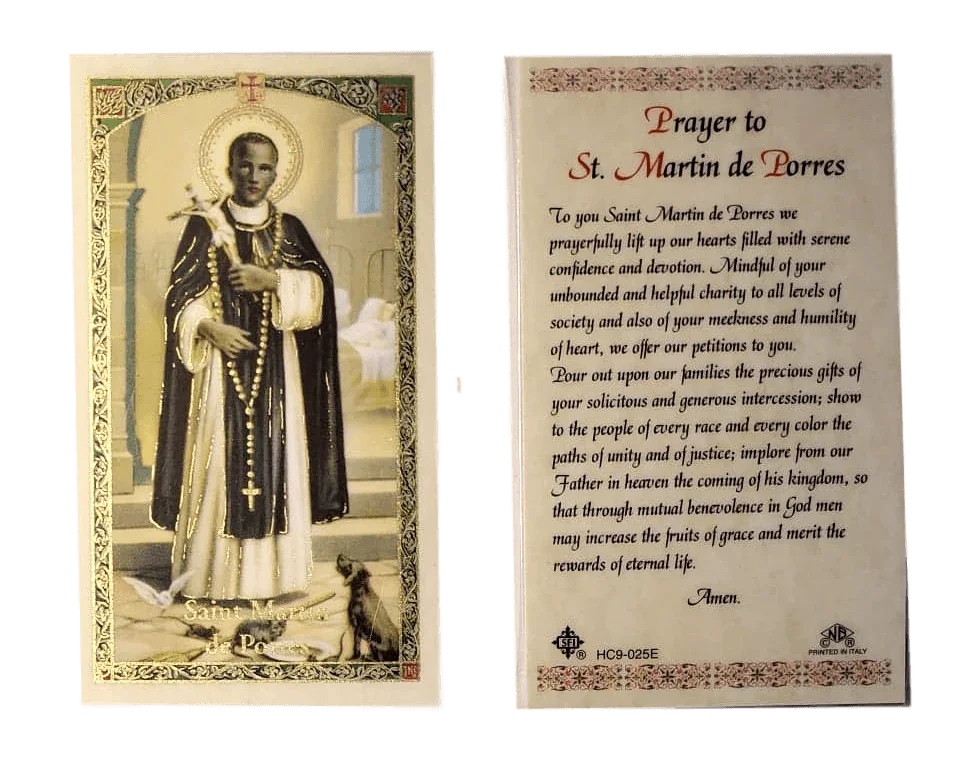 Saint Martin
de Porres
Prayer to
St. Martin de Porres
To you Saint Martin de Porres we
prayerfully lift up our hearts filled with serene
confidence and devotion. Mindful of your
unbounded and helpful charity to all levels of
society and also of your meekness and humility
of heart, we offer our petitions to you.
Pour out upon our families the precious gifts of
your solicitous and generous intercession; show
to the people of every race and every color the
paths of unity and of justice; implore from our
Father in heaven the coming of his kingdom, so
that through mutual benevolence in God men
may increase the fruits of grace and merit the
rewards of eternal life.
Amen.
SFI ® HC9-025E
NB
C R
PRINTED IN ITALY